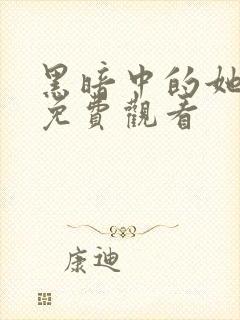 黑暗中的她
免費觀看
康迪